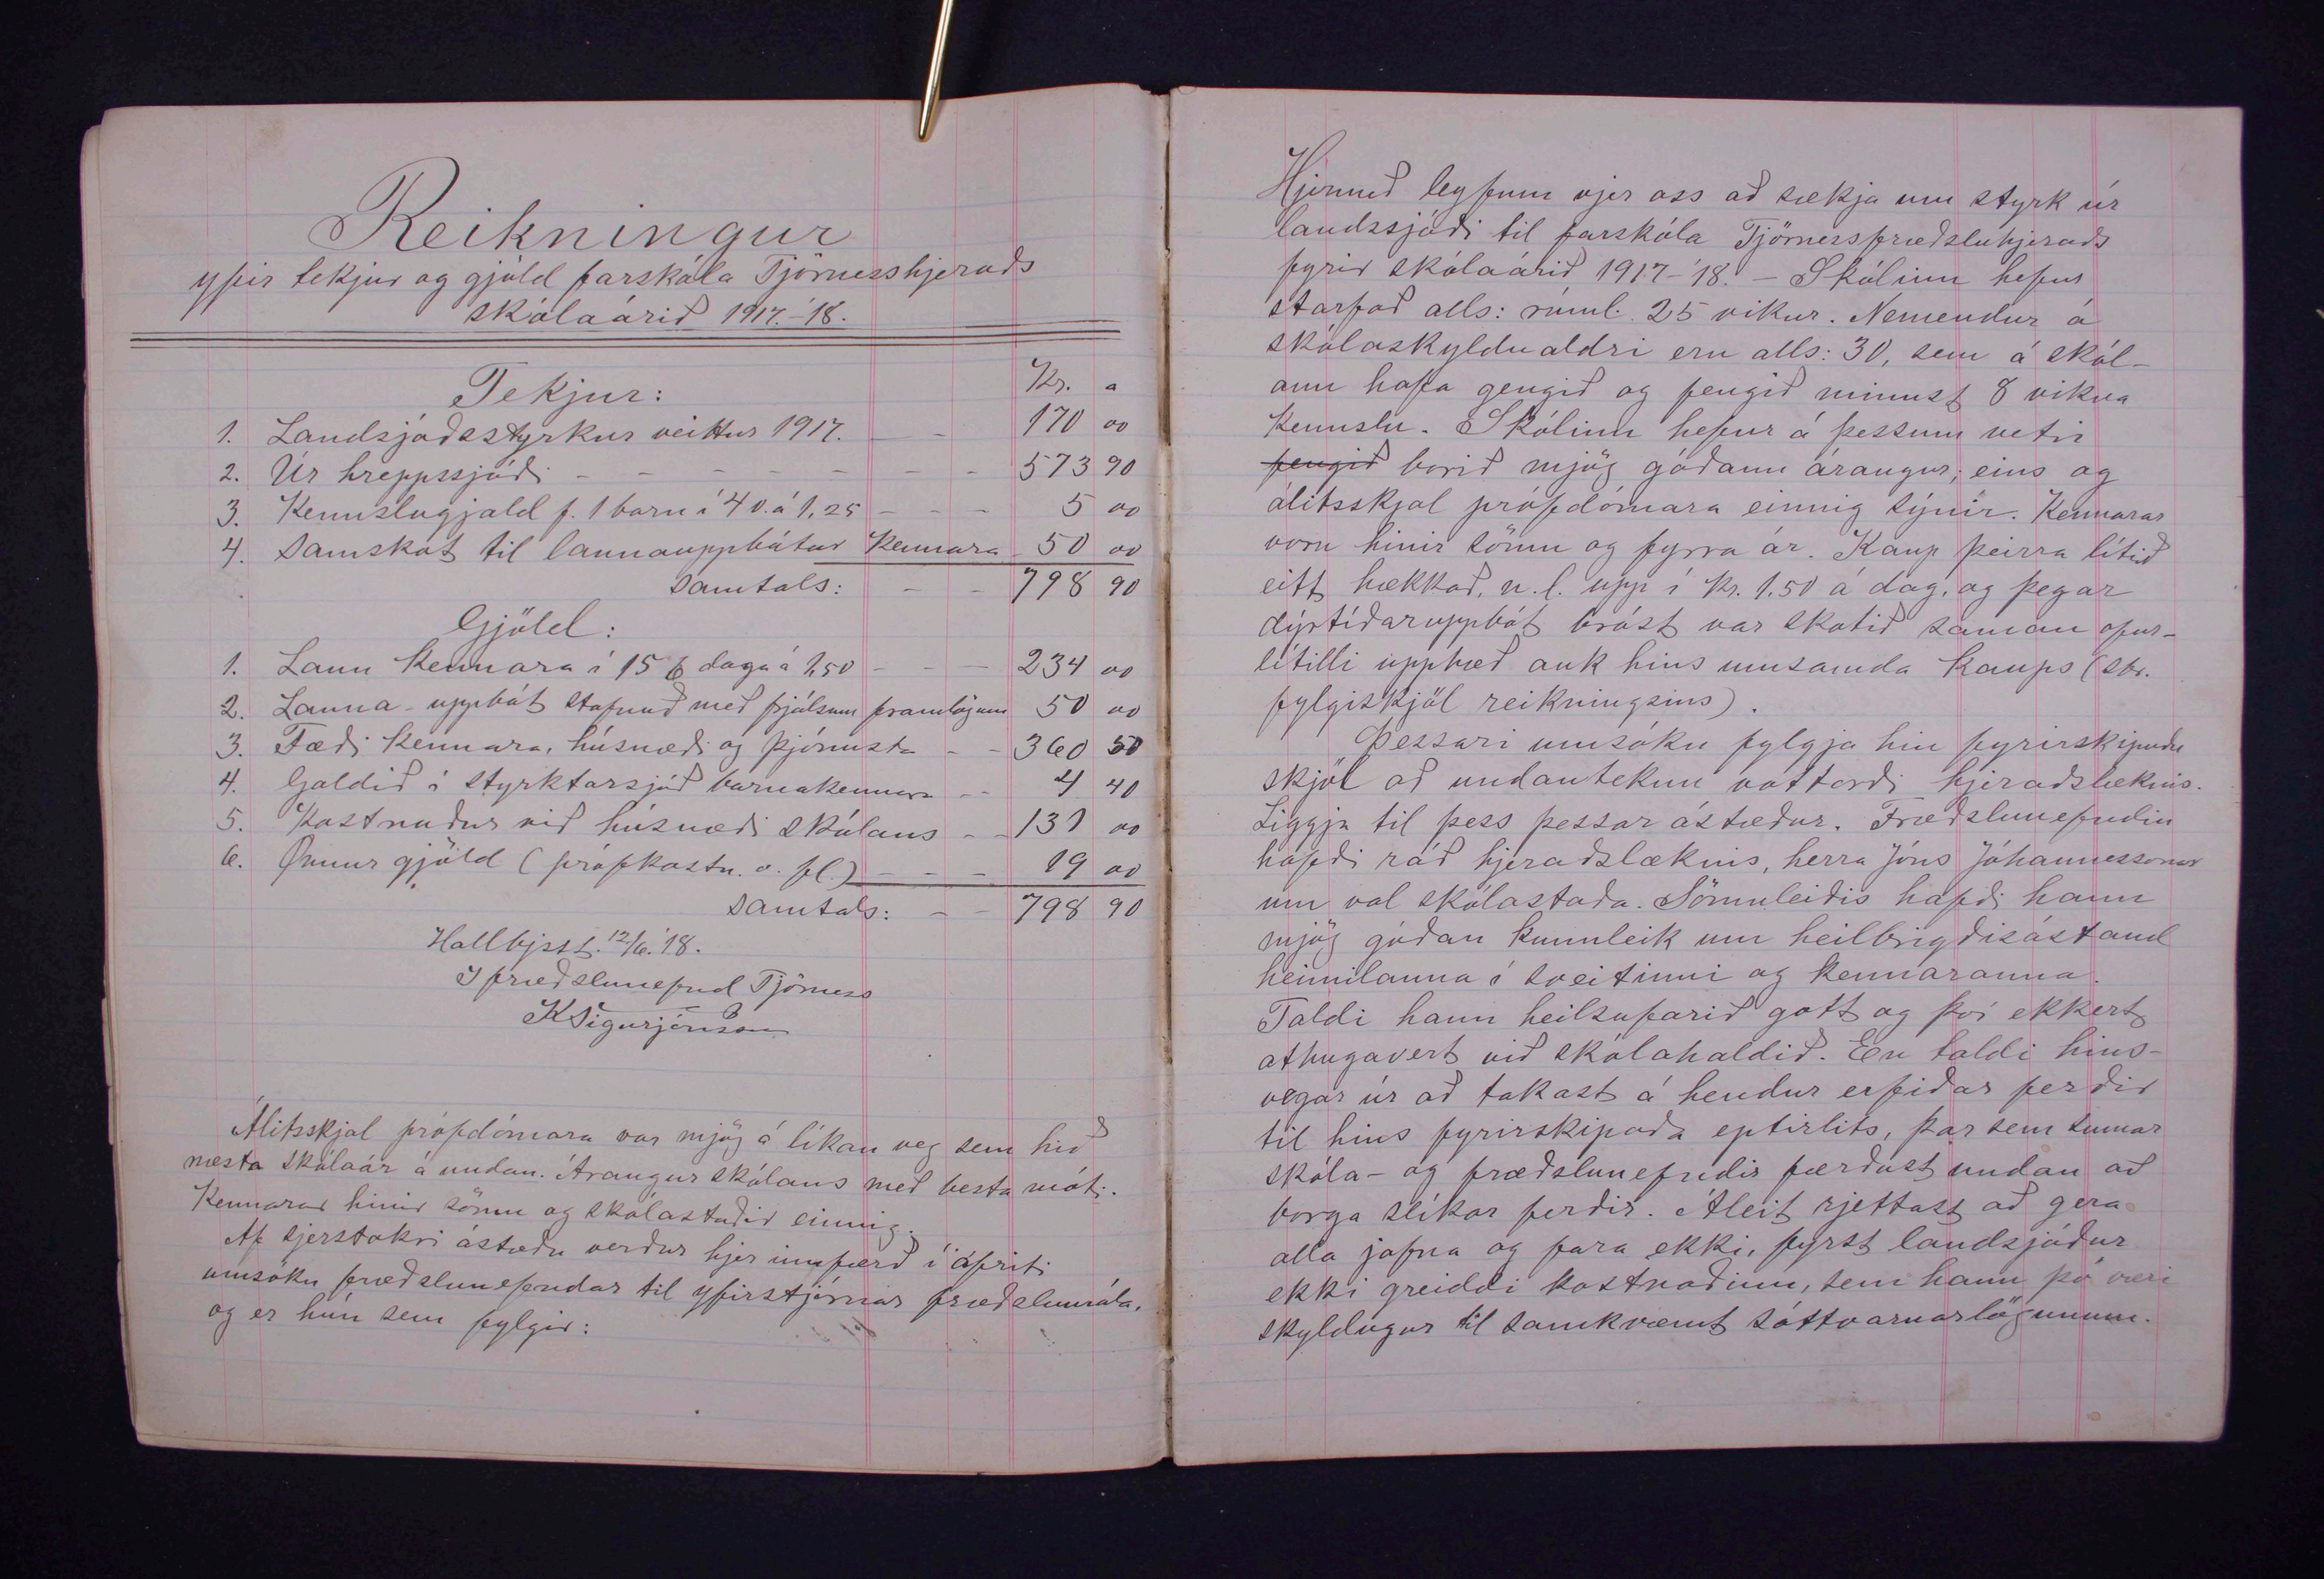 Reikningur
yfir tekjur og gjöld farskóla Tjörnesshjeraðs
skólaárið 1917-'18.
Tekjur: Kr. a
1. Landsjóðsstyrkur veittur 1917. - - 170 00
2. Úr hreppssjóði - - - - - - - 573 90
3. Kennslugjald f. 1 barn í 4 v. á 1,25 - - - 5 00
4. Samskot til launauppbótar kennara - 50 00
Samtals: - - 798 90
Gjöld:
1. Laun kennara í 156 daga á 1,50 - - - 234 00
2. Launa-uppbót stofnuð með frjálsum framlögum 50 00
3. Fæði kennara, húsnæði og þjónusta - - 360 50
4. Goldið í styrktarsjóð barnakennara - - 4 40
5. Kostnaður við húsnæði skólans - - 131 00
6. Önnur gjöld (prófkostn. o. fl.) - - - 19 00
Samtals: - - 798 90
Hallbjst. 12/6. '18.
I fræðslunefnd Tjörness
KSigurjónsson
Álitsskjal prófdómara var mjög á líkan veg sem hið
næsta skólaár á undan. Árangur skólans með besta móti.
Kennarar hinir sömu og skólastaðir einnig.
Af sjerstakri ástæðu verður hjer innfærð í afriti
umsókn fræðslunefndar til yfirstjórnar fræðslumála,
og er hún sem fylgir:
Hjermeð leyfum vjer oss að sækja um styrk úr
landssjóði til farskóla Tjörnessfræðsluhjeraðs
fyrir skólaárið 1917-'18. - Skólinn hefur
starfað alls: rúml. 25 vikur. Nemendur á
skólaskyldualdri eru alls: 30, sem á skól-
ann hafa gengið og fengið minnst 8 vikna
kennslu. Skólinn hefur á þessum vetri
fengið borið mjög góðann árangur, eins og
álitsskjal prófdómara einnig sýnir. Kennarar
voru hinir sömu og fyrra ár. Kaup þeirra lítið
eitt hækkað, n.l. upp í kr. 1.50 á dag, og þegar
dýrtíðaruppbót brást var skotið saman ofur-
lítilli upphæð auk hins umsamda kaups (sbr.
fylgiskjöl reikningsins).
Þessari umsókn fylgja hin fyrirskipuðu
skjöl að undanteknu vottorði hjeraðslæknis.
Liggja til þess þessar ástæður. Fræðslunefndin
hafði ráð hjeraðslæknis, herra Jóns Jóhannessonar
um val skólastaða. Sömuleiðis hafði hann
mjög góðan kunnleik um heilbrigðisástand
heimilanna í sveitinni og kennaranna.
Taldi hann heilsufarið gott og því ekkert
athugavert við skólahaldið. En taldi hins-
vegar úr að takast á hendur erfiðar ferðir
til hins fyrirskipaða eptirlits, þar sem sumar
skóla- og fræðslunefndir færðust undan að
borga slíkar ferðir. Áleit rjettast að gera
alla jafna og fara ekki, fyrst landsjóður
ekki greiddi kostnaðinn, sem hann þó væri
skyldugur til samkvæmt sóttvarnarlögunum.